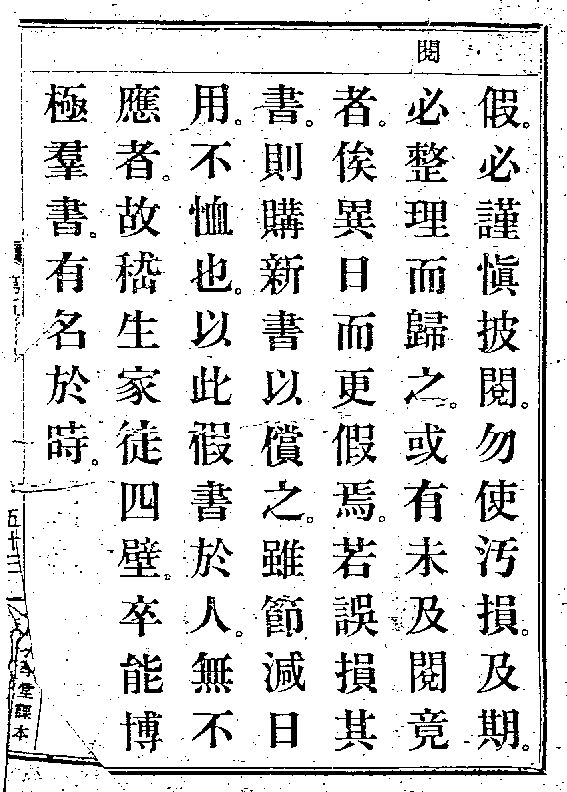 閱
假。必謹愼披閱。勿使汚損。及期。
必整理而歸之。或有未及閱竟
者。俟異日而更假焉。若誤損其
書。則購新書以償之。雖節減日
用。不恤也。以此假書於人。無不
應者。故嵇生家徒四壁。卒能博
極羣書。有名於時。
五十三